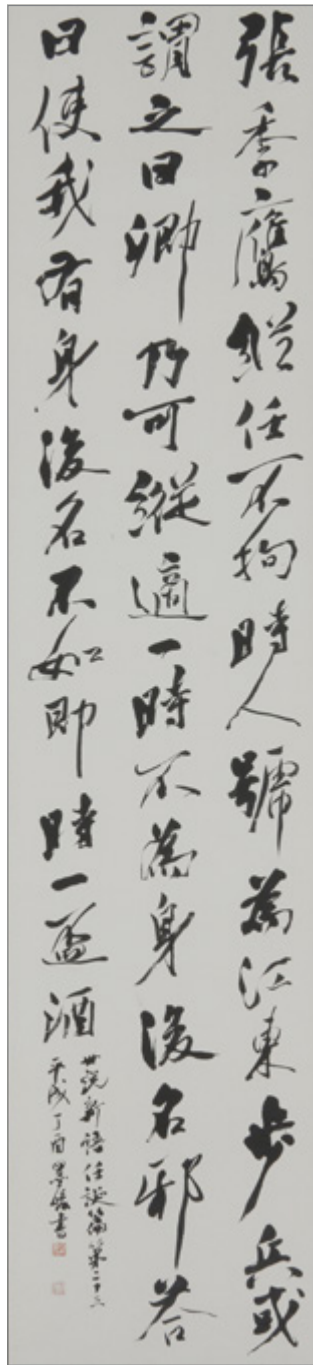 張季鷹縱任不拘時人號為江東步兵或
謂之曰卿乃可縱適一時不為身後名邪答
曰使我有身後名不如即時一盃酒
世説新語任誕篇第二十三
平成丁酉書